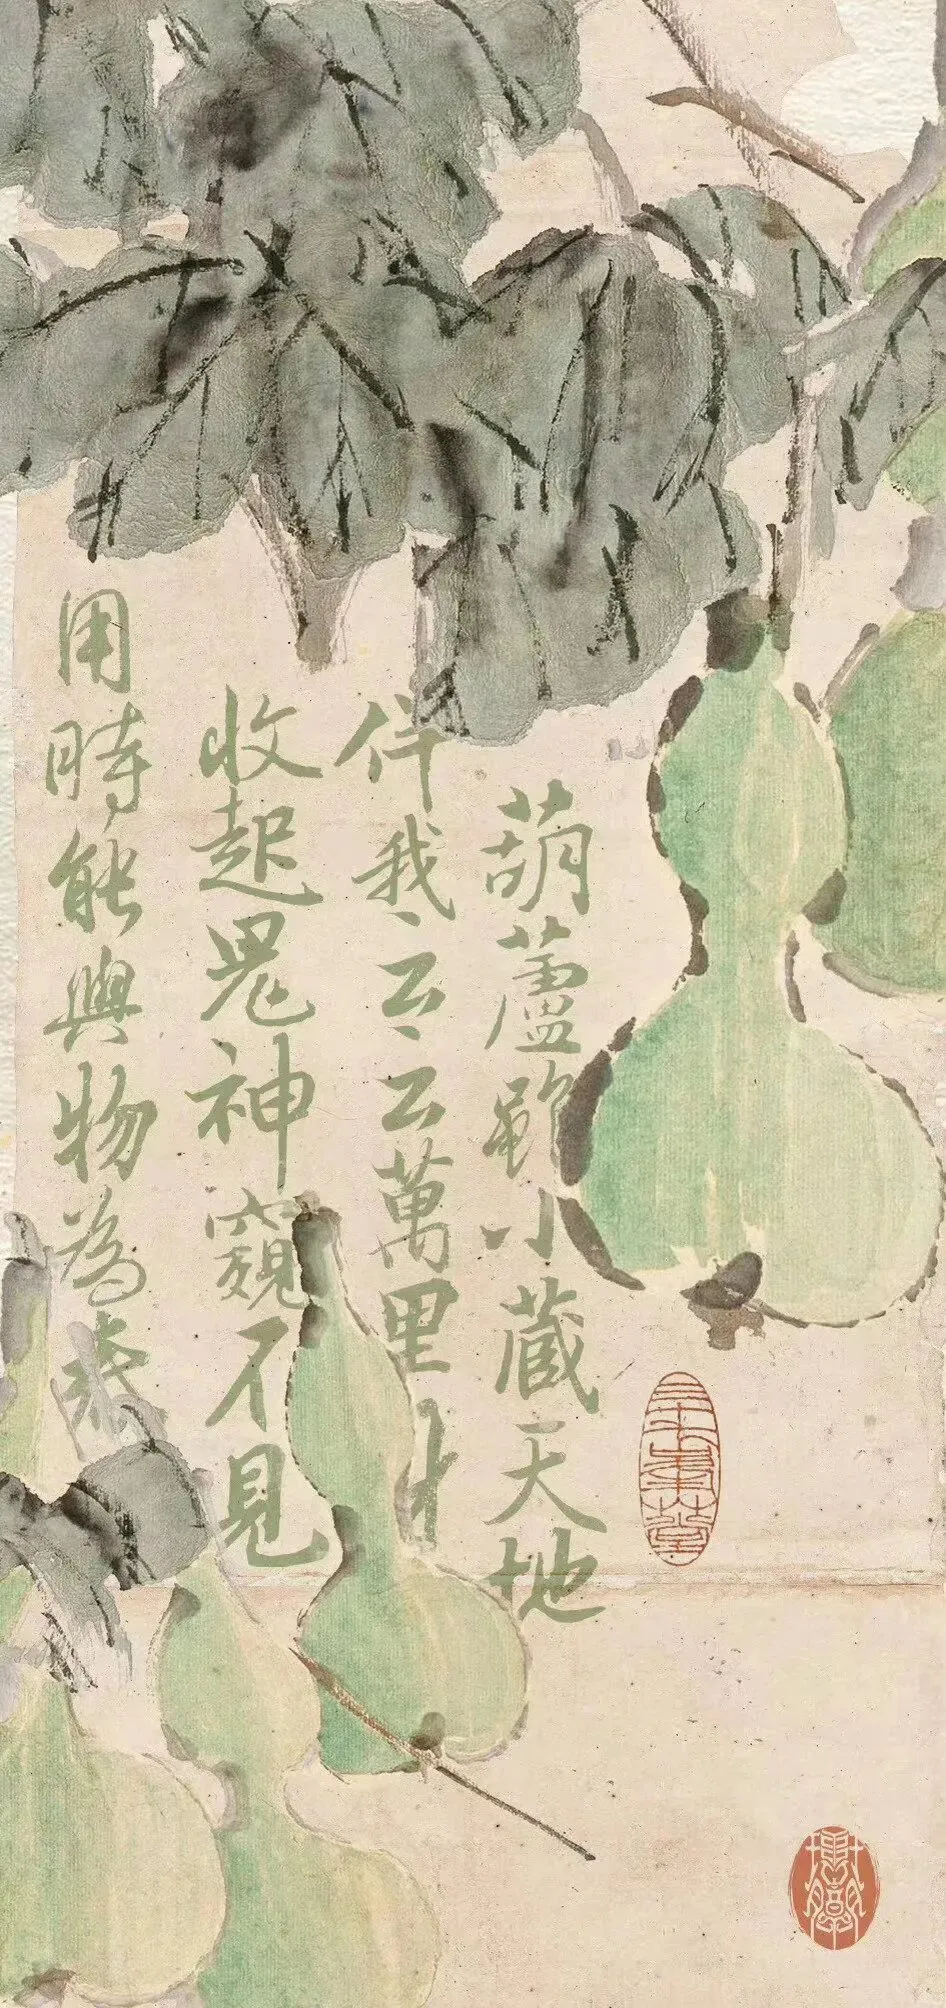 葫蘆雖小藏天地
伴我云云萬里
收起鬼神窺不見
用時能與物為春